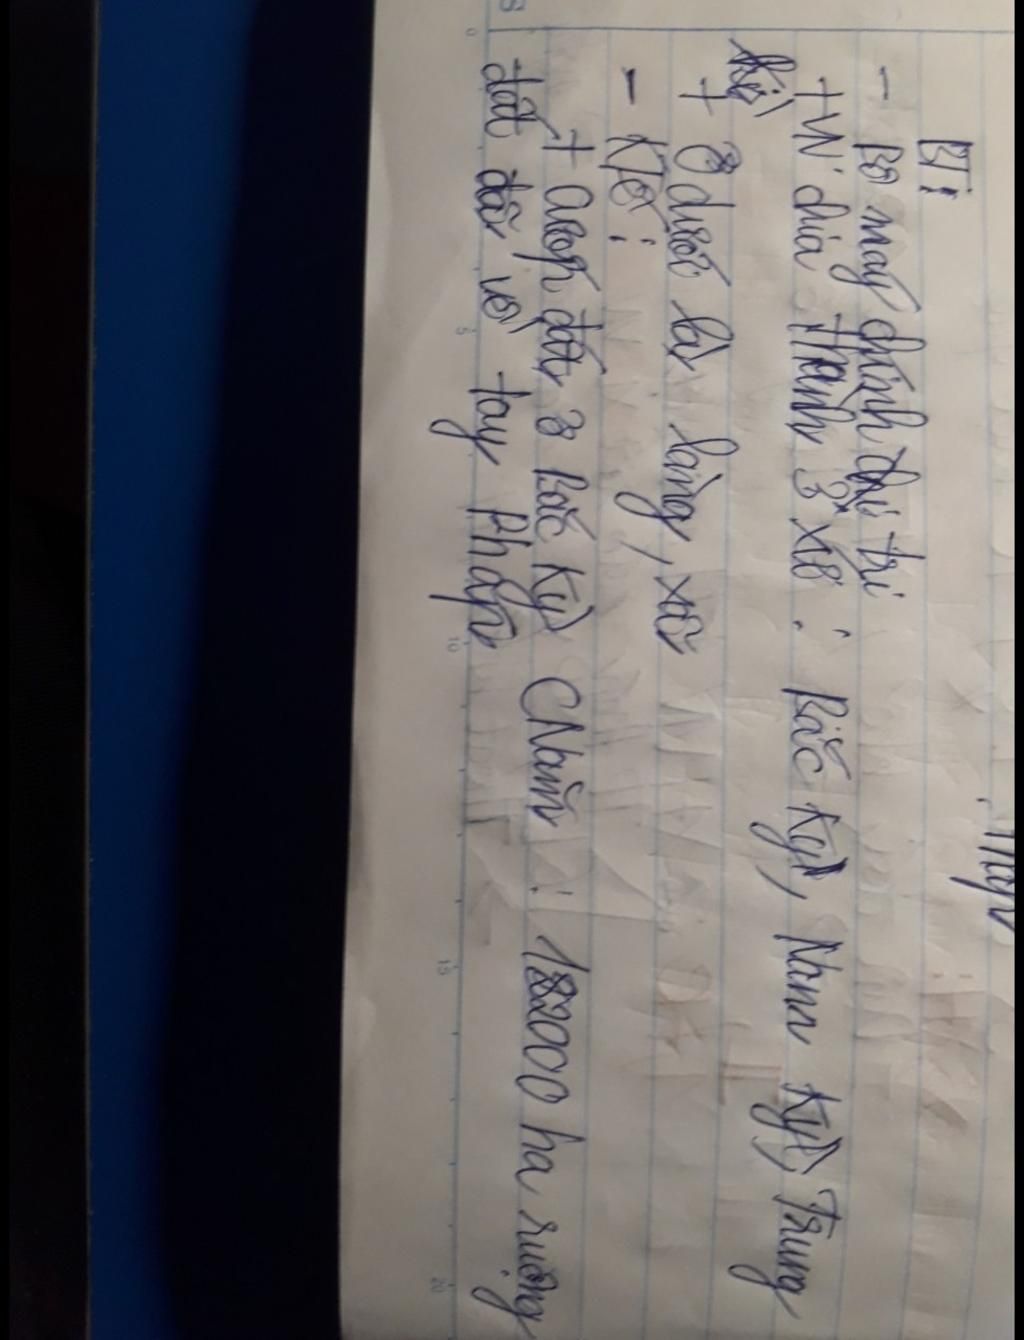 VN:
- Bộ máy chính chị trị
+ VN chia thành 3 xứ : Bắc Kỳ, Nam Kỳ, Trung
Kỳ
+ Ở dưới là làng, xã
- Ktế :
+ cướp đất, ở Bắc Kỳ CNam : 182000 ha ruộng
đất đã về tay Pháp
0 5 10 15 20